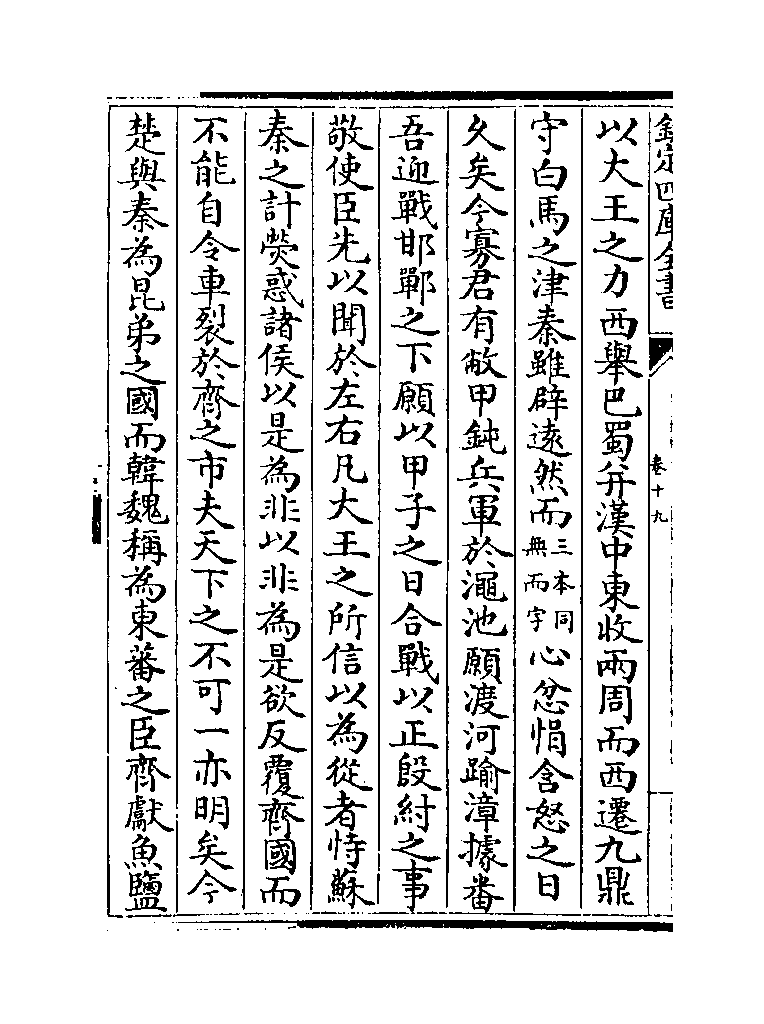 欽定四庫全書
卷十九
以大王之力西舉巴蜀并漢中東收兩周而西遷九鼎
守白馬之津秦雖辟逺然而三本同無而字心忿悁含怒之日
久矣今寡君有敝甲鈍兵軍於澠池願渡河踰漳據番
吾迎戰邯鄲之下願以甲子之日合戰以正殷紂之事
敬使臣先以聞於左右凡大王之所信以為從者恃蘇
秦之計熒惑諸侯以是為非以非為是欲反覆齊國而
不能自令車裂於齊之市夫天下之不可一亦明矣今
楚與秦為昆弟之國而韓魏稱為東蕃之臣齊獻魚鹽